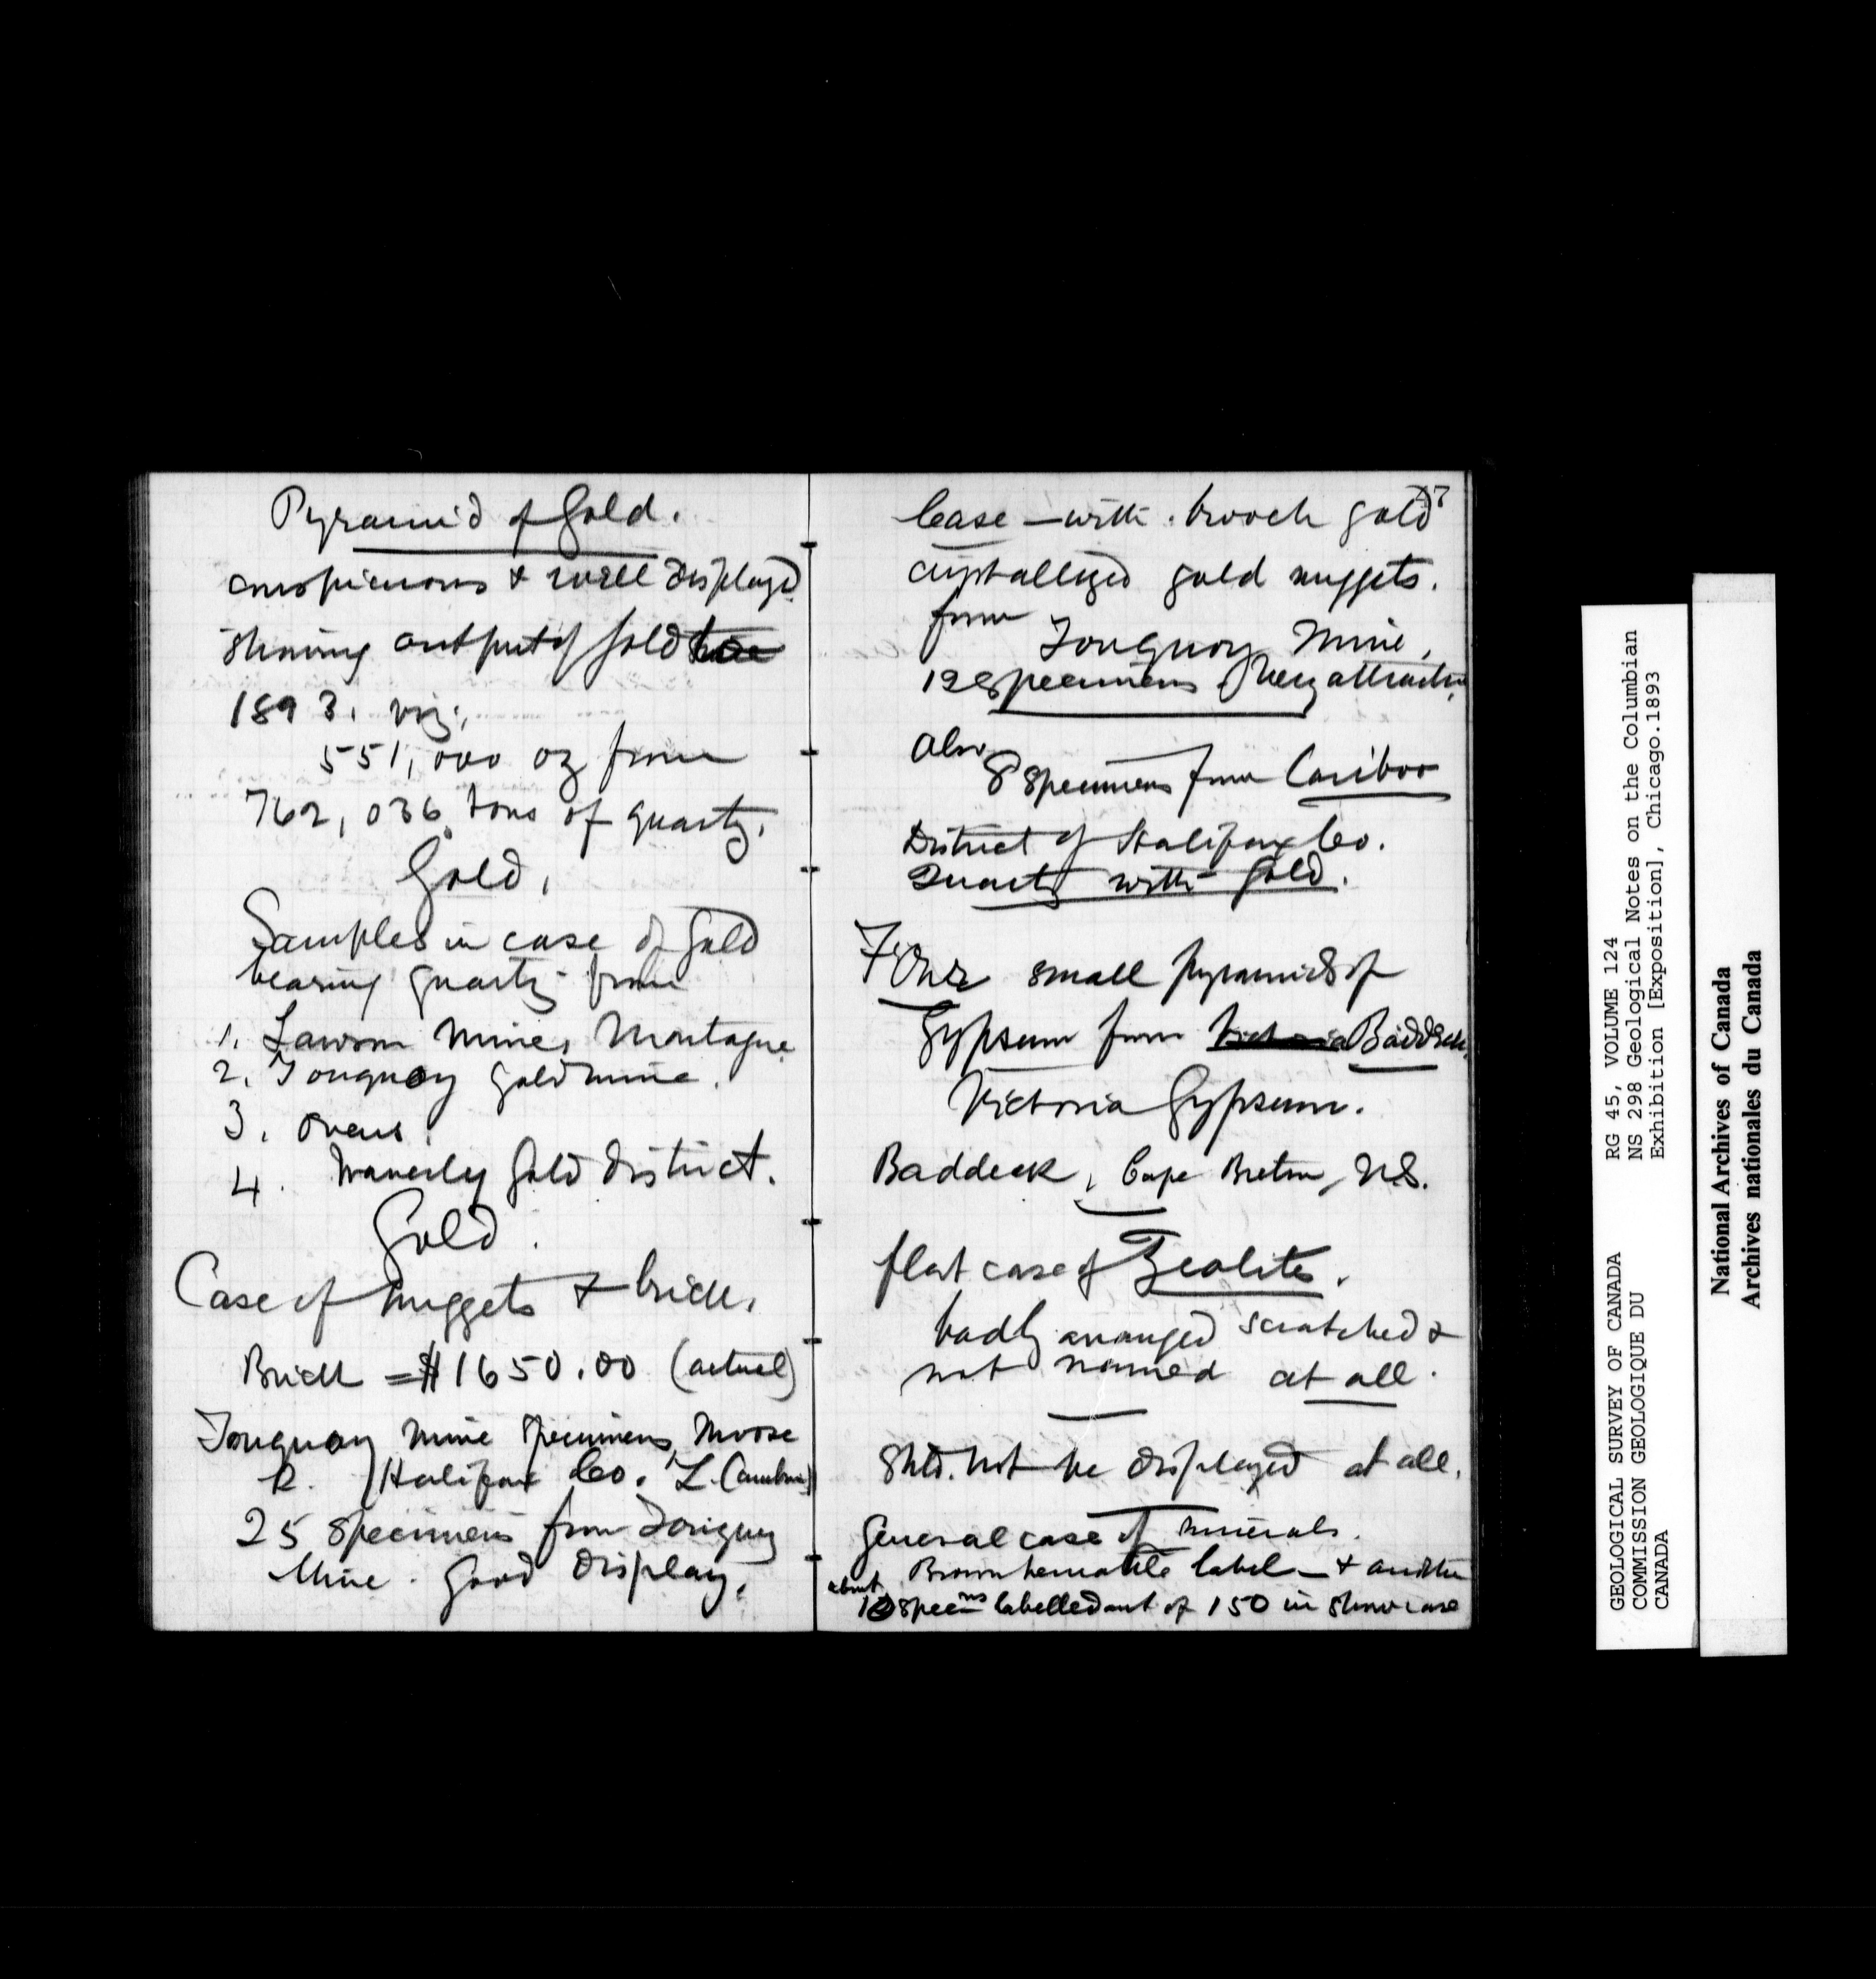 Pyramid of Gold.
conspicuous & well displayed
showing output of gold
1893. viz:,
551,000 oz from
762,036 tons of quartz.
Gold,
Samples in case of Gold
bearing quartz from
1. Lawson Mine, Montague
2. Touquoy Gold mine.
3. Ovens.
4. Waverley Gold District.
Gold.
Case of Nuggets & brick.
Brick = $1650.00 (actual)
Touquoy Mine Specimens, Moose
R. Halifax Co. L.
25 specimens from Touquoy
Mine. Good Display.
17
Case — with brooch gold
crystallized gold nuggets.
from
Touquoy Mine.
12 specimens very attractive.
Also
8 specimens from Cariboo
District of Halifax Co.
Quartz with gold.
Four small pyramids of
Gypsum from Victoria Baddeck.
Victoria Gypsum.
Baddeck, Cape Breton, N.S.
flat case of Zeolites.
badly arranged scratched &
not named at all.
Shld. not be displayed at all.
General case of minerals.
Brown hematite label — & another
about
12 specims labelled out of 150 in showcase
GEOLOGICAL SURVEY OF CANADA
COMMISSION GEOLOGIQUE DU
CANADA
RG 45, VOLUME 124
NS 298 Geological Notes on the Columbian
Exhibition [Exposition], Chicago.1893
National Archives of Canada
Archives nationales du Canada